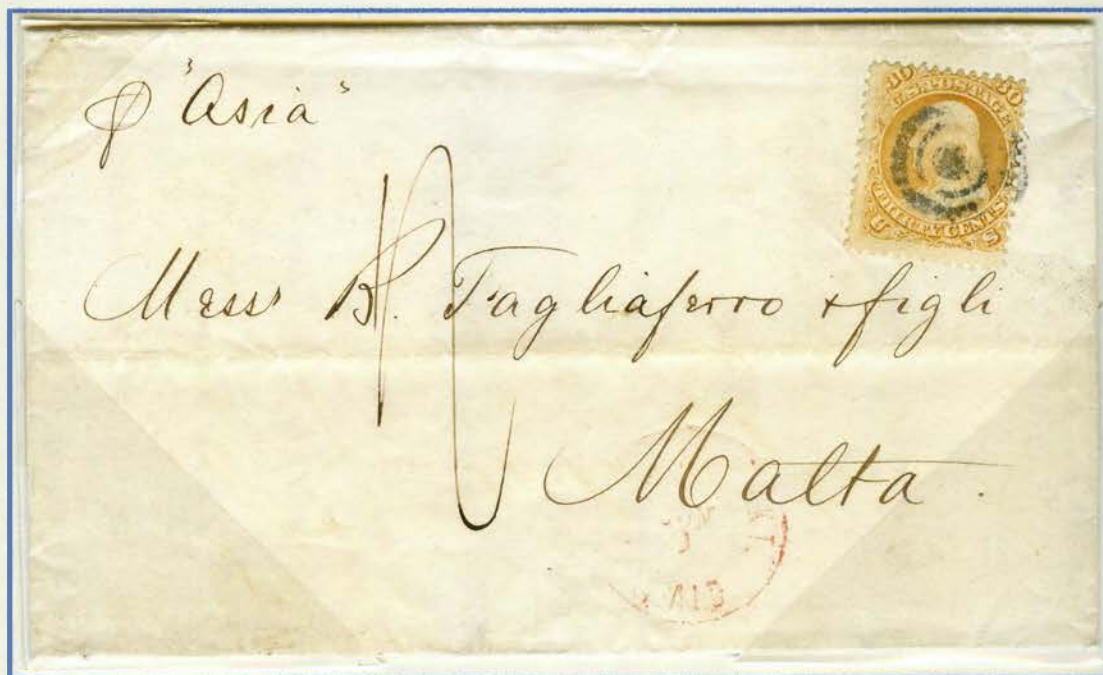 p "Asia"
30 30
U.S. POSTAGE
THIRTY CENTS
U S
Mess^rs B. Tagliaferro & figli
Malta.
PAID